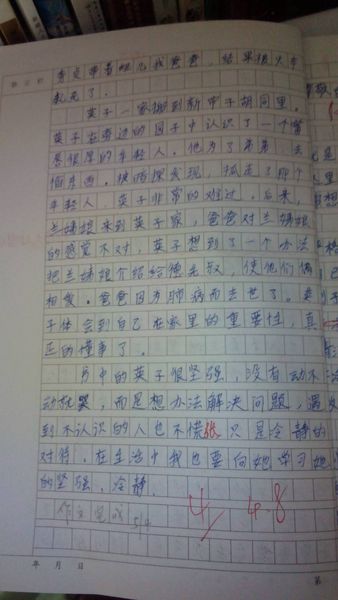 秀贞带着妞儿找爸爸，结果被火车
轧死了。
英子一家搬到新帘子胡同里。
英子在旁边的园子中认识了一个嘴
唇很厚的年轻人。他为了弟弟，去
偷东西。被暗探发现，抓走了那个
年轻人，英子非常的难过。后来，
兰姨娘来到英子家，爸爸对兰姨娘
的感觉不对，英子想到了一个办法
把兰姨娘介绍给德先叔，使他们俩
相爱。爸爸因为肺病而去世了。英
子体会到自己在家里的重要性，真
正的懂事了。
书中的英子很坚强，没有动不
动就哭，而是想办法解决问题，遇
到不认识的人也不慌张，只是冷静的
对待。在生活中我也要向她学习她
的坚强、冷静。
作文完成
4.8
年 月 日
第